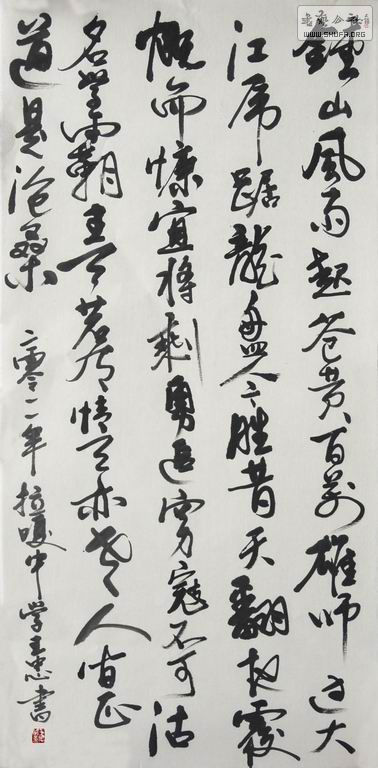 鍾山風雨起苍黄百萬雄师过大
江虎踞龍盤今胜昔天翻地覆
慨而慷宜將剩勇追穷寇不可沽
名學霸王天若有情天亦老人间正
道是沧桑
二零一一年拉嘎中学王忠書
WWW.SHUFA.ORG